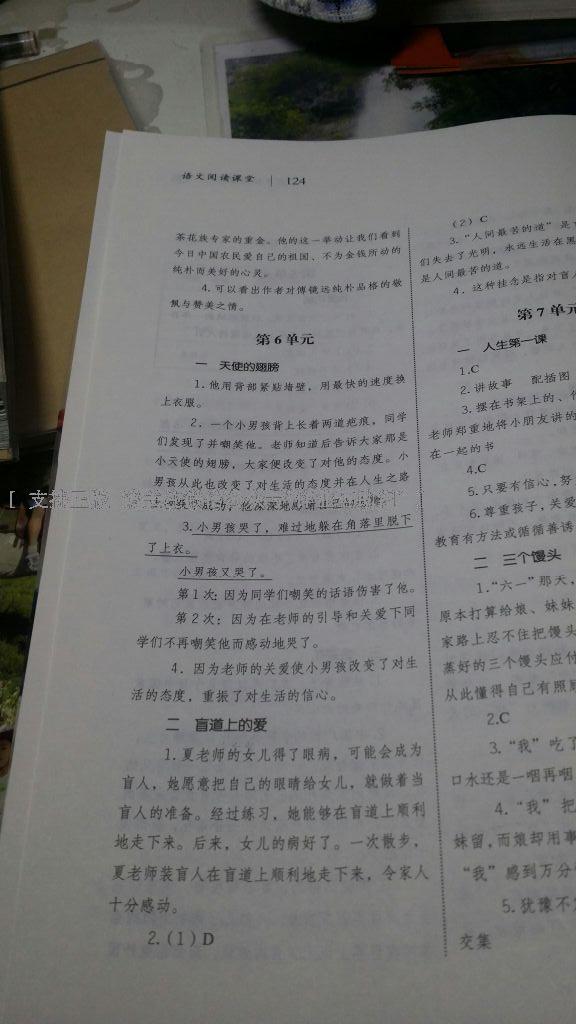 语文阅读课堂 | 124
茶花族专家的重金。他的这一举动让我们看到
今日中国农民爱自己的祖国、不为金钱所动的
纯朴而美好的心灵。
4.可以看出作者对傅镜远纯朴品格的敬
佩与赞美之情。
第6单元
一 天使的翅膀
1.他用背部紧贴墙壁，用最快的速度换
上衣服。
2.一个小男孩背上长着两道疤痕，同学
们发现了并嘲笑他。老师知道后告诉大家那是
小天使的翅膀，大家便改变了对他的态度。小
男孩从此也改变了对生活的态度并在人生之路
3.小男孩哭了，难过地躲在角落里脱下
了上衣。
小男孩又哭了。
第1次：因为同学们嘲笑的话语伤害了他。
第2次：因为在老师的引导和关爱下同
学们不再嘲笑他而感动地哭了。
4.因为老师的关爱使小男孩改变了对生
活的态度，重振了对生活的信心。
二 盲道上的爱
1.夏老师的女儿得了眼病，可能会成为
盲人，她愿意把自己的眼睛给女儿，就做着当
盲人的准备。经过练习，她能够在盲道上顺利
地走下来。后来，女儿的病好了。一次散步，
夏老师装盲人在盲道上顺利地走下来，令家人
十分感动。
2.(1)D
(2)C
3.“人间最苦的道”是
们失去了光明，永远生活在黑
是人间最苦的道。
4.这种挂念是指对盲人
第7单元
一 人生第一课
1.C
2.讲故事 配插图
3.摆在书架上的、
老师郑重地将小朋友讲的
在一起的书
4.C
5.只要有信心，努
6.尊重孩子，关爱
教育有方法或循循善诱
二 三个馒头
1.“六一”那天，
原本打算给娘、妹妹
家路上忍不住把馒头
蒸好的三个馒头应付
从此懂得自己有照顾
2.C
3.“我”吃了
口水还是一咽再咽
4.“我”把
妹留，而娘却用事
“我”感到万分
5.犹豫不
交集